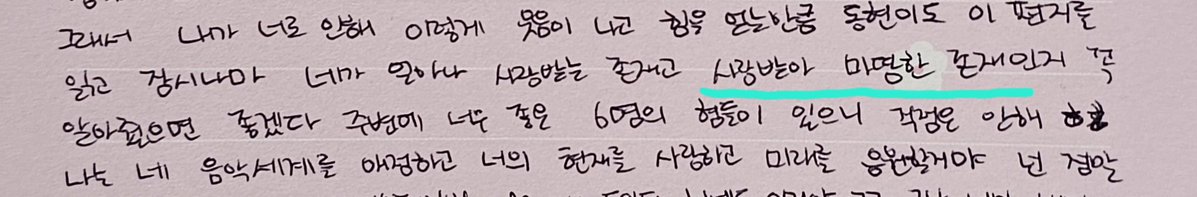 그래서 나가 너로 인해 이렇게 웃음이 나고 힘을 얻는만큼 동현이도 이 편지를
읽고 잠시나마 네가 얼마나 사랑받는 존재고 사랑받아 마땅한 존재인지 꼭
알아줬으면 좋겠다 주변에 너무 좋은 6명의 형들이 있으니 걱정은 안해
나는 네 음악세계를 애정하고 너의 현재를 사랑하고 미래를 응원할거야 넌 정말